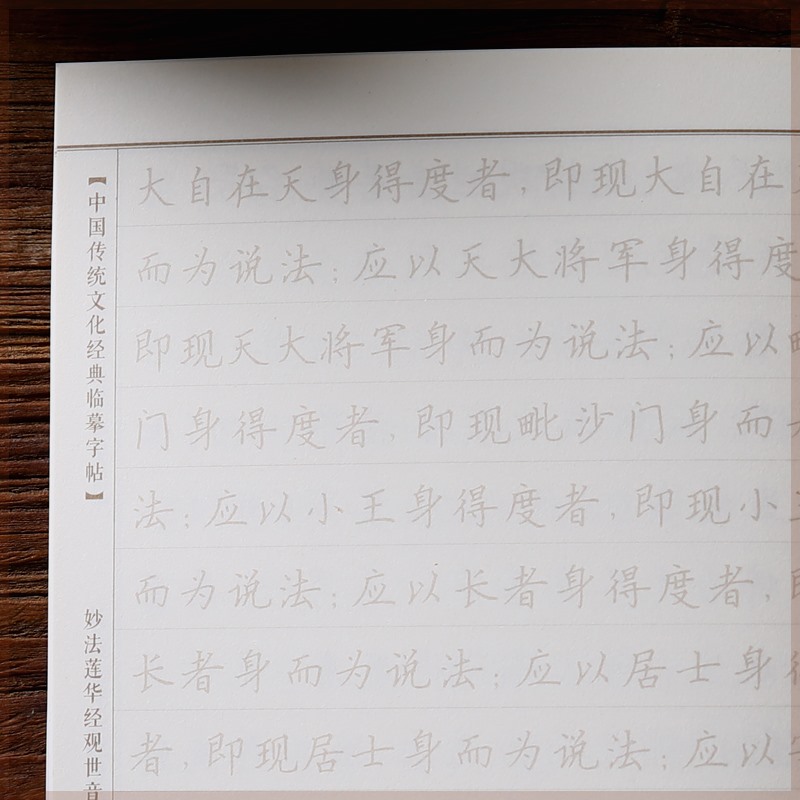 【中国传统文化经典临摹字帖】
妙法莲华经观世音
大自在天身得度者,即现大自在
而为说法;应以天大将军身得度
即现天大将军身而为说法;应以毗
门身得度者,即现毗沙门身而
法;应以小王身得度者,即现小
而为说法;应以长者身得度者,即
长者身而为说法;应以居士身得
者,即现居士身而为说法;应以宰